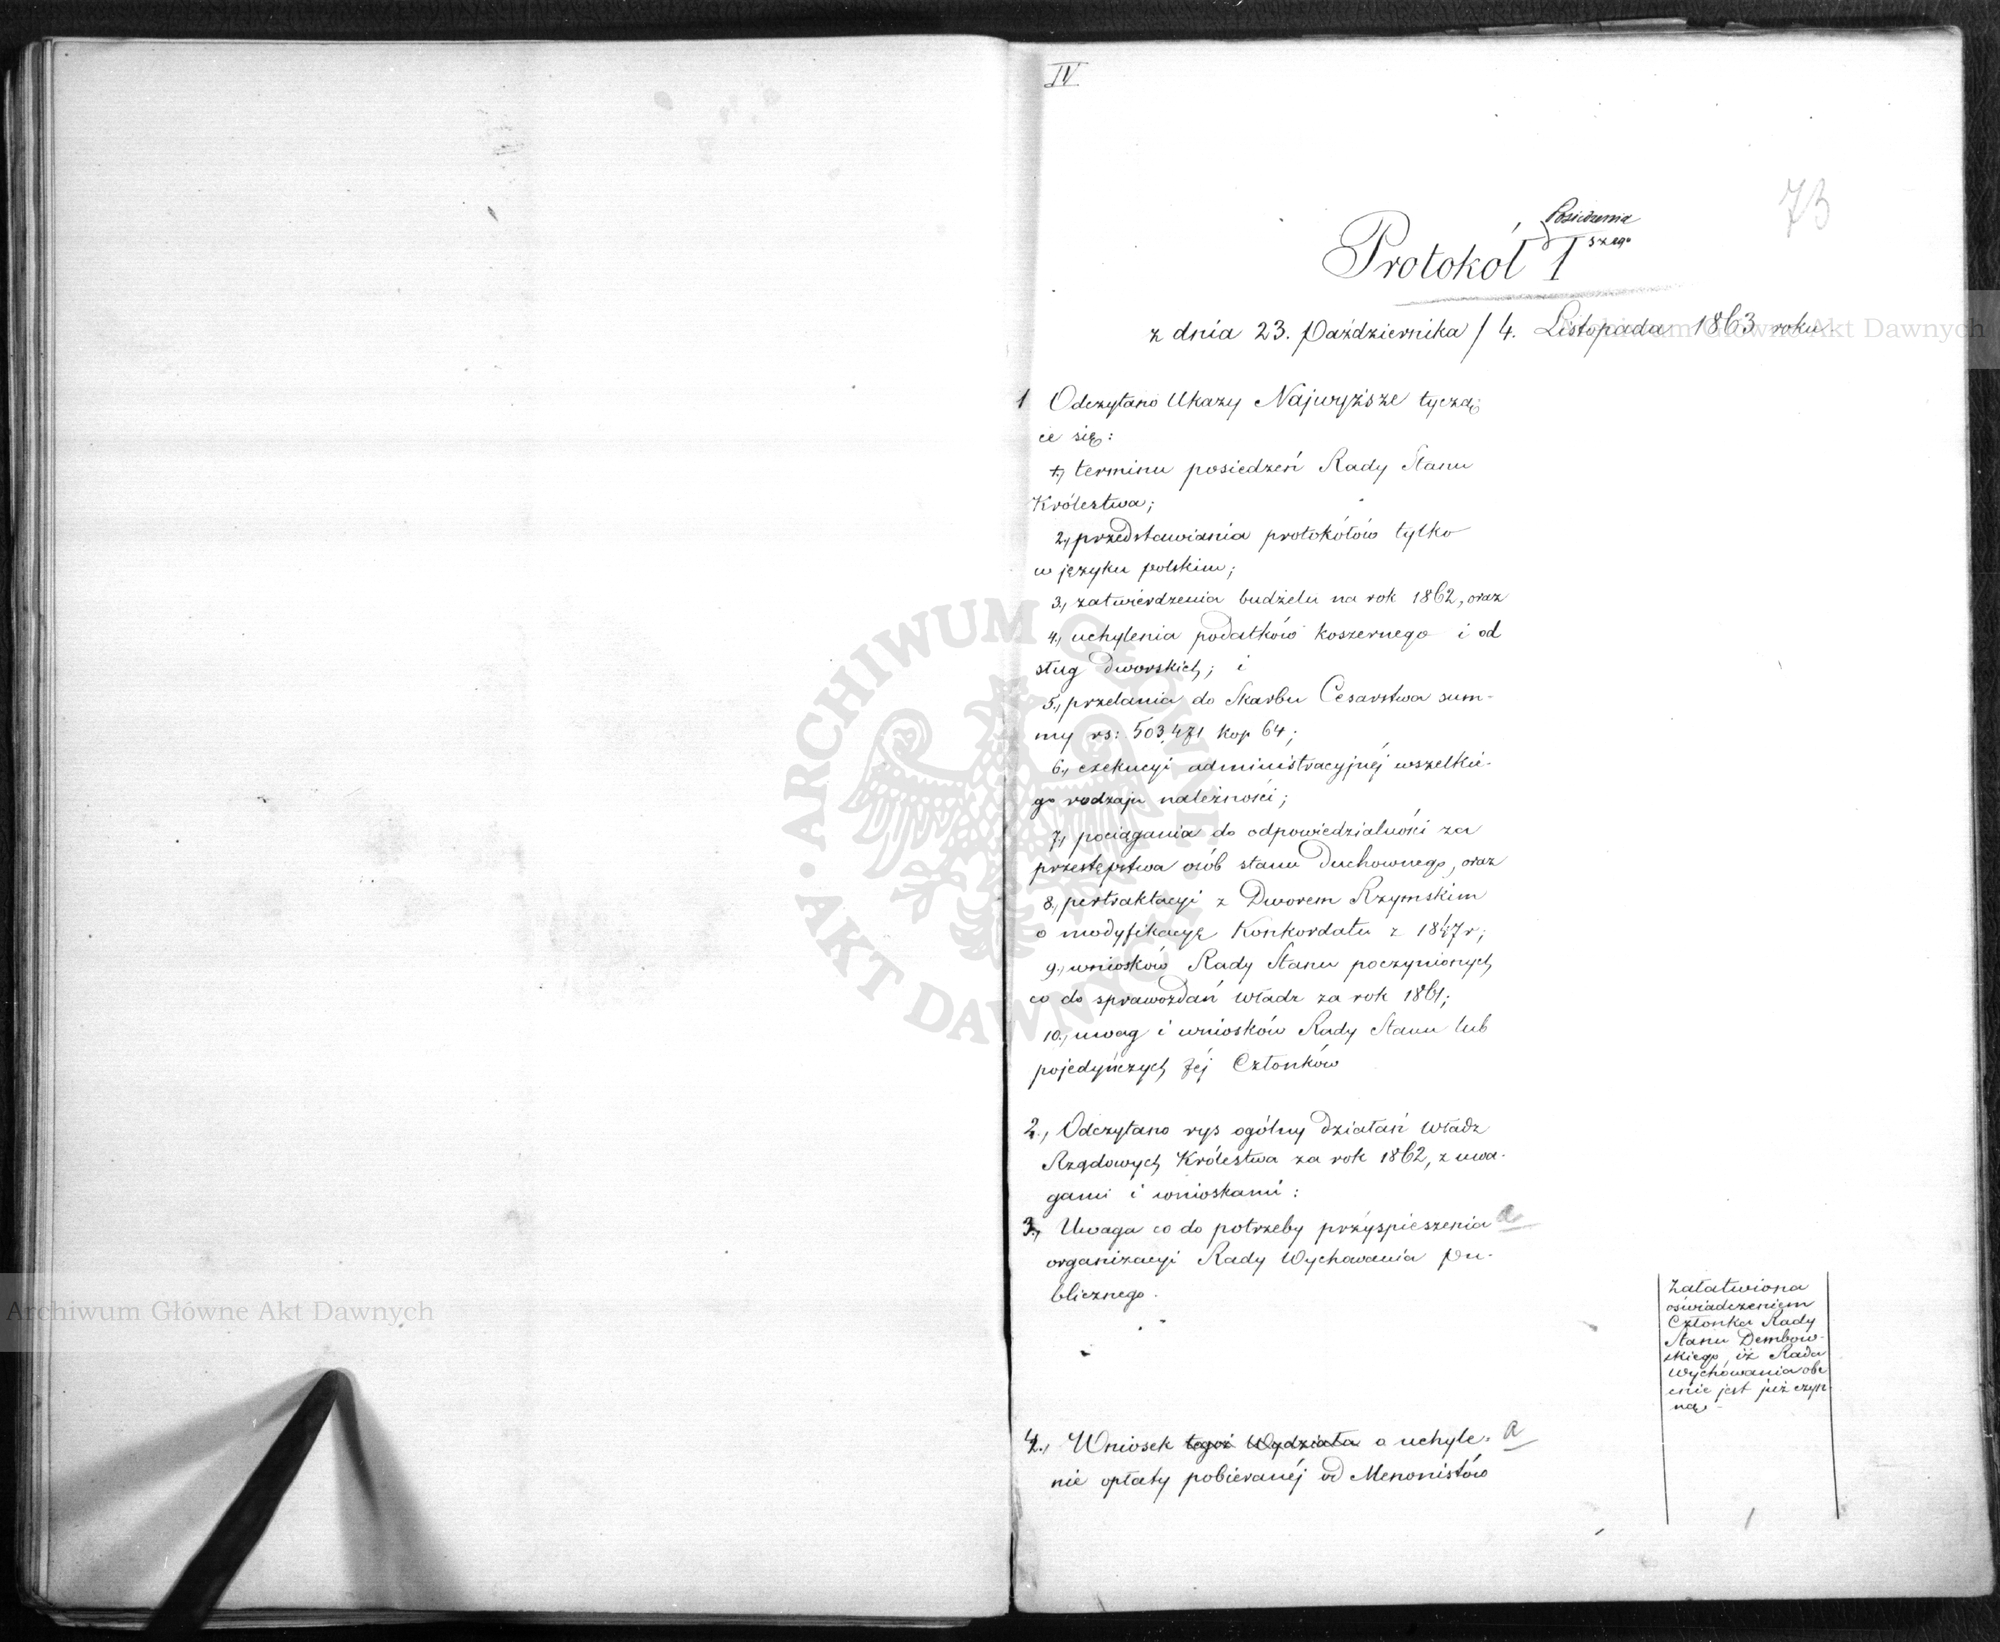 IV
73
Posiedzenia
Protokół I szego
z dnia 23. Października / 4. Listopada 1863 roku.
1 Odczytano Ukazy Najwyższe tyczą-
ce się:
1, terminu posiedzeń Rady Stanu
Królestwa;
2, przedstawiania protokółów tylko
w języku polskim;
3, zatwierdzenia budżetu na rok 1862, oraz
4, uchylenia podatków koszernego i od
sług Dworskich; i
5, przelania do Skarbu Cesarstwa sum-
my rs: 503,471 kop 64;
6, exekucyi administracyjnéj wszelkie-
go rodzaju należności;
7, pociągania do odpowiedzialności za
przestępstwa osób stanu Duchownego, oraz
8, pertraktacyi z Dworem Rzymskim
o modyfikacyę Konkordatu z 1847 r;
9, wniosków Rady Stanu poczynionych
co do sprawozdań Władz za rok 1861;
10, uwag i wniosków Rady Stanu lub
pojedyńczych Jéj Członków
2, Odczytano rys ogólny Działań Władz
Rządowych Królestwa za rok 1862, z uwa-
gami i wnioskami:
3, Uwaga co do potrzeby przyspieszenia a
organizacyi Rady Wychowania Pu-
blicznego.
Załatwiona
oświadczeniem
Członka Rady
Stanu Dembow-
skiego, iż Rada
Wychowania obe
cnie jest już czyn-
ną.
4, Wniosek tegoż Wydziału o uchyle- a
nie opłaty pobieranéj od Menonistów
ARCHIWUM GŁÓWNE AKT DAWNYCH
Archiwum Główne Akt Dawnych
Archiwum Główne Akt Dawnych